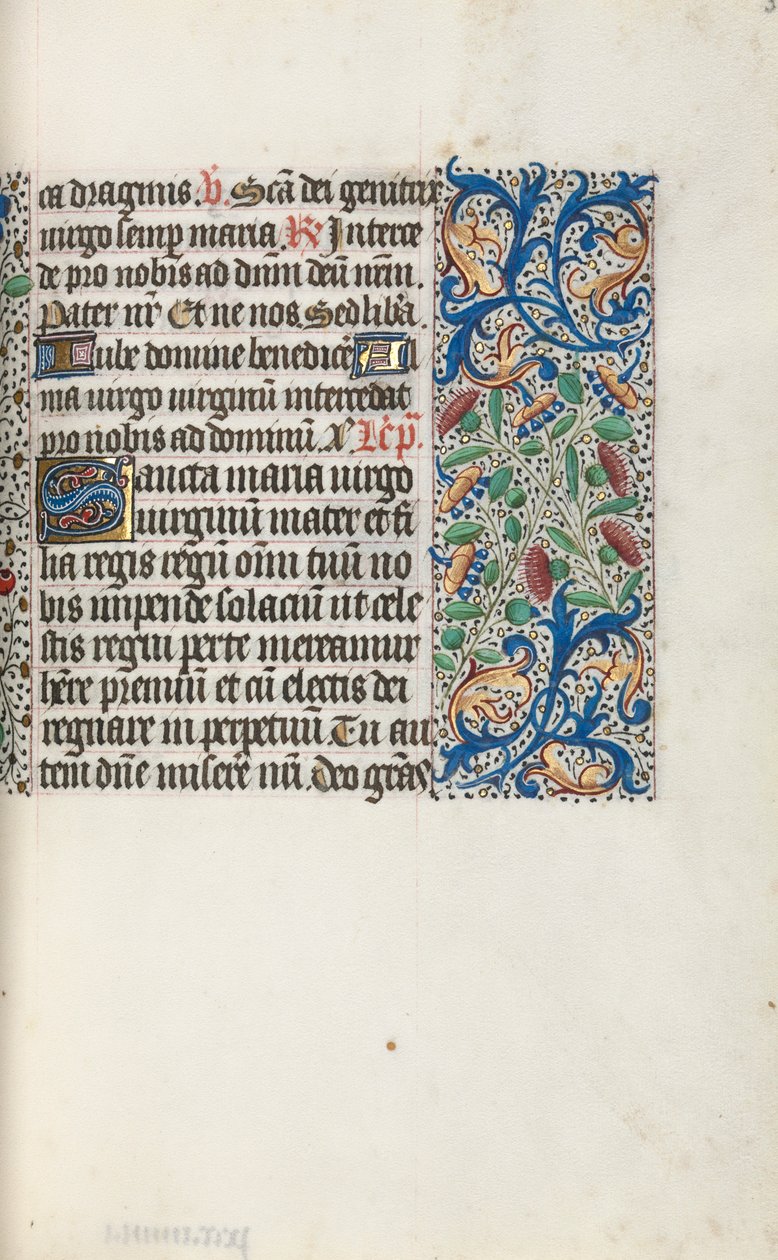 ca draginis. V̇. Scā dei genitrix
uirgo semp̲ maria. R̸ Interce
de pro nobis ad dn̄m deū nr̄m.
Pater nr̄ Et ne nos. Sed lib̄a.
Iube domine benedicē Al
ma uirgo uirginū intercedat
pro nobis ad dominū. X̄ Lc̄p̄.
Sancta maria uirgo
uirginū mater et fi
lia regis regū om̄i tuū no
bis impende solaciū ut cele
stis regni per te mereamur
h̄ere premiū et cū electis dei
regnare in perpetuū. Tu au
tem dn̄e miserē nr̄i. Deo gr̄as